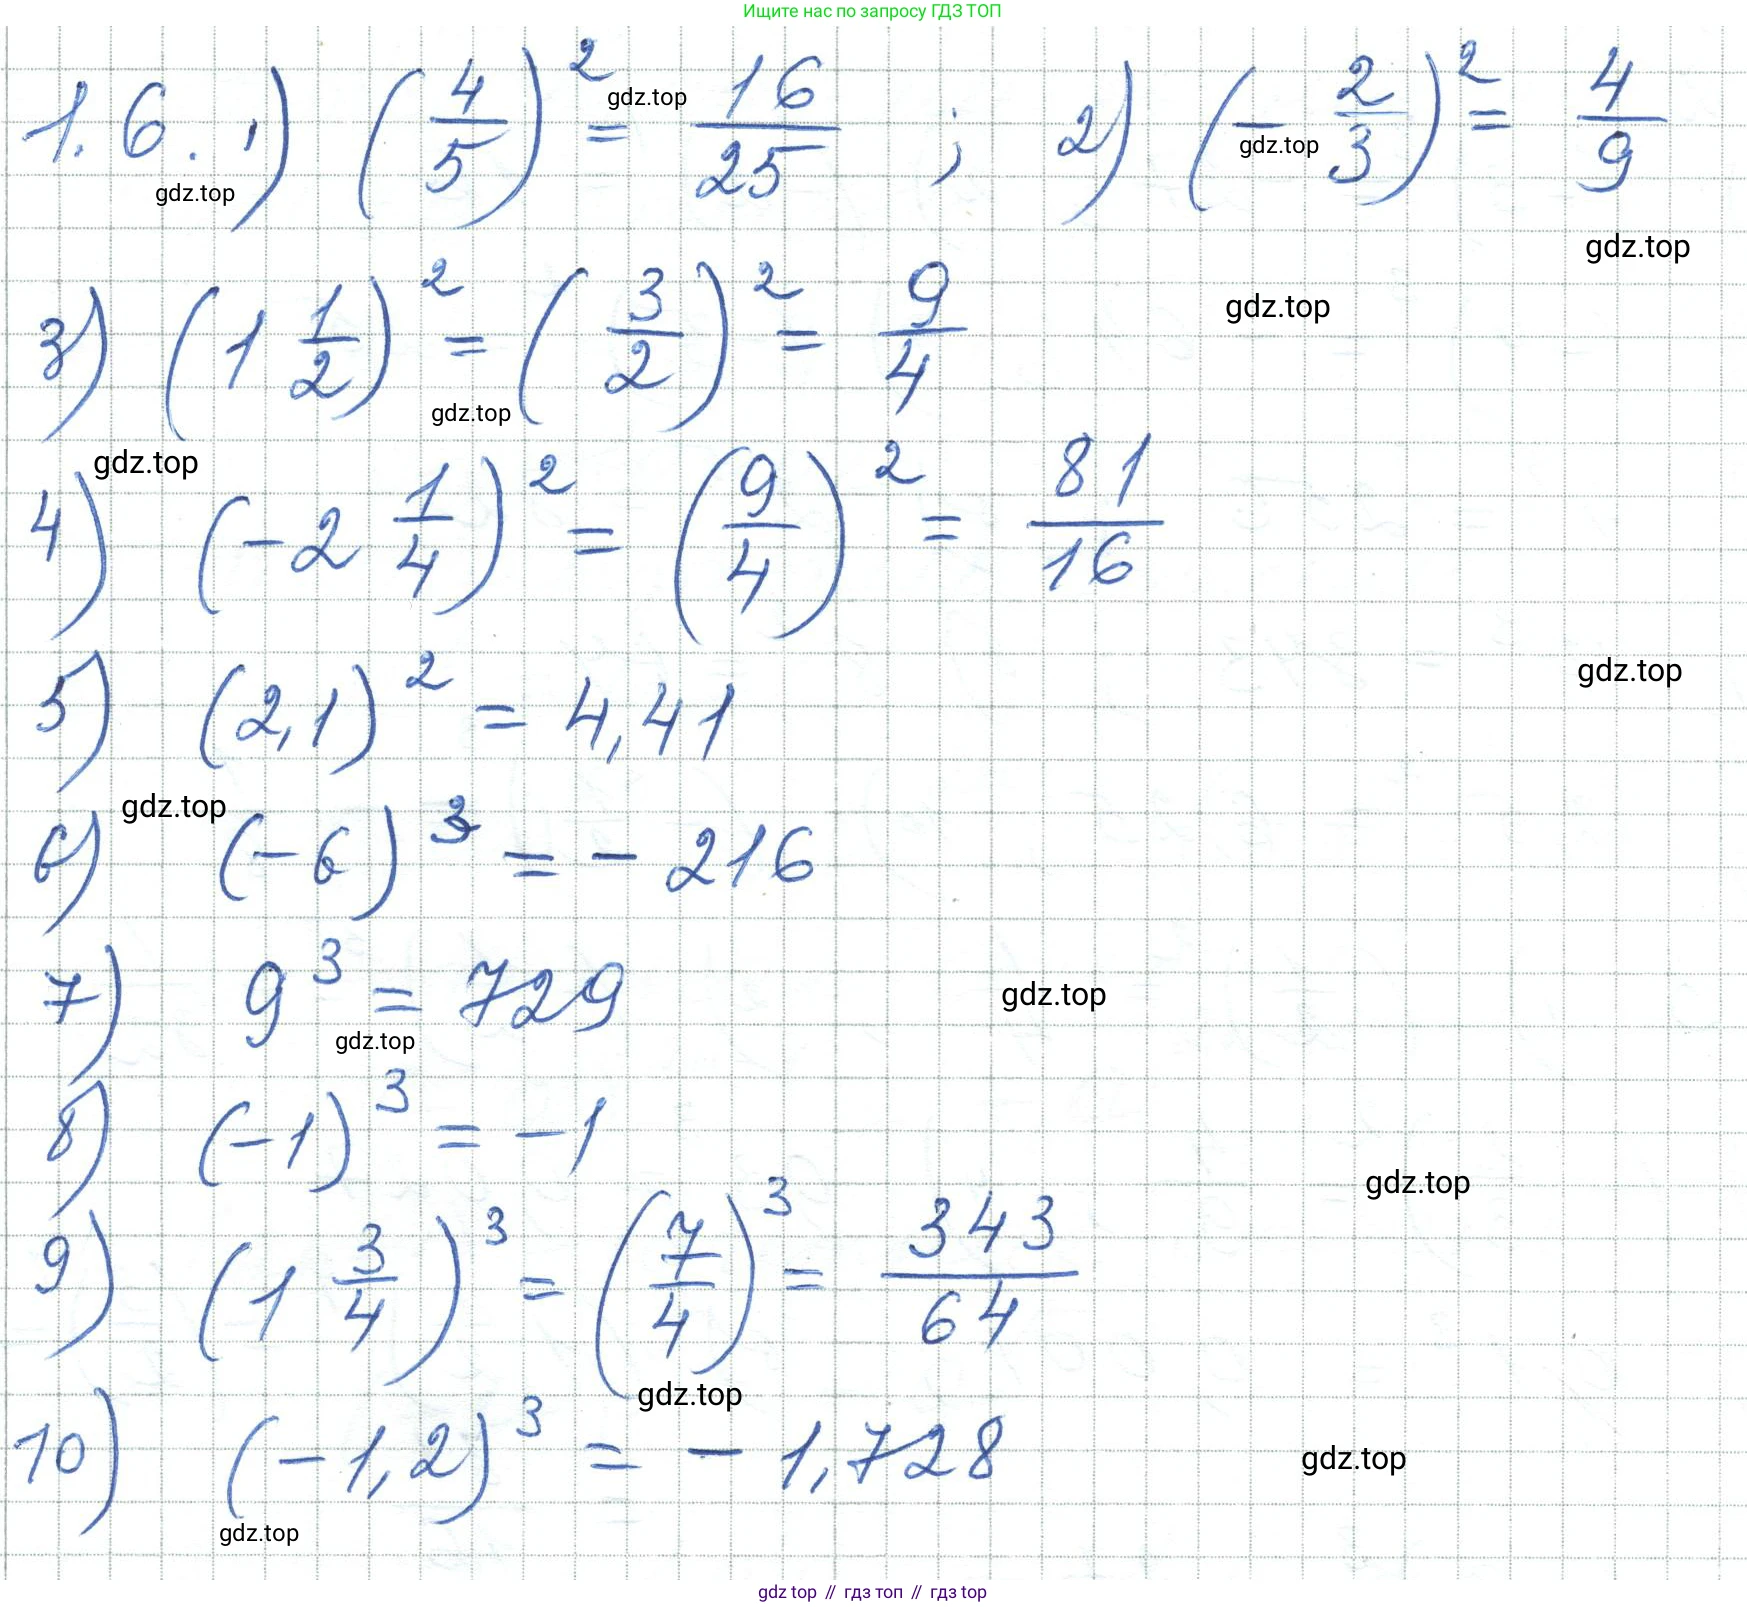 Ищите нас по запросу ГДЗ ТОП
1.6. 1) (4/5)² = 16/25 ; 2) (- 2/3)² = 4/9
gdz.top gdz.top gdz.top
gdz.top
3) (1 1/2)² = (3/2)² = 9/4
gdz.top
gdz.top
gdz.top
4) (-2 1/4)² = (9/4)² = 81/16
5) (2,1)² = 4,41
gdz.top
gdz.top
6) (-6)³ = - 216
7) 9³ = 729
gdz.top
gdz.top
8) (-1)³ = -1
gdz.top
9) (1 3/4)³ = (7/4)³ = 343/64
gdz.top
10) (-1,2)³ = - 1,728
gdz.top
gdz.top
gdz top // гдз топ // гдз top